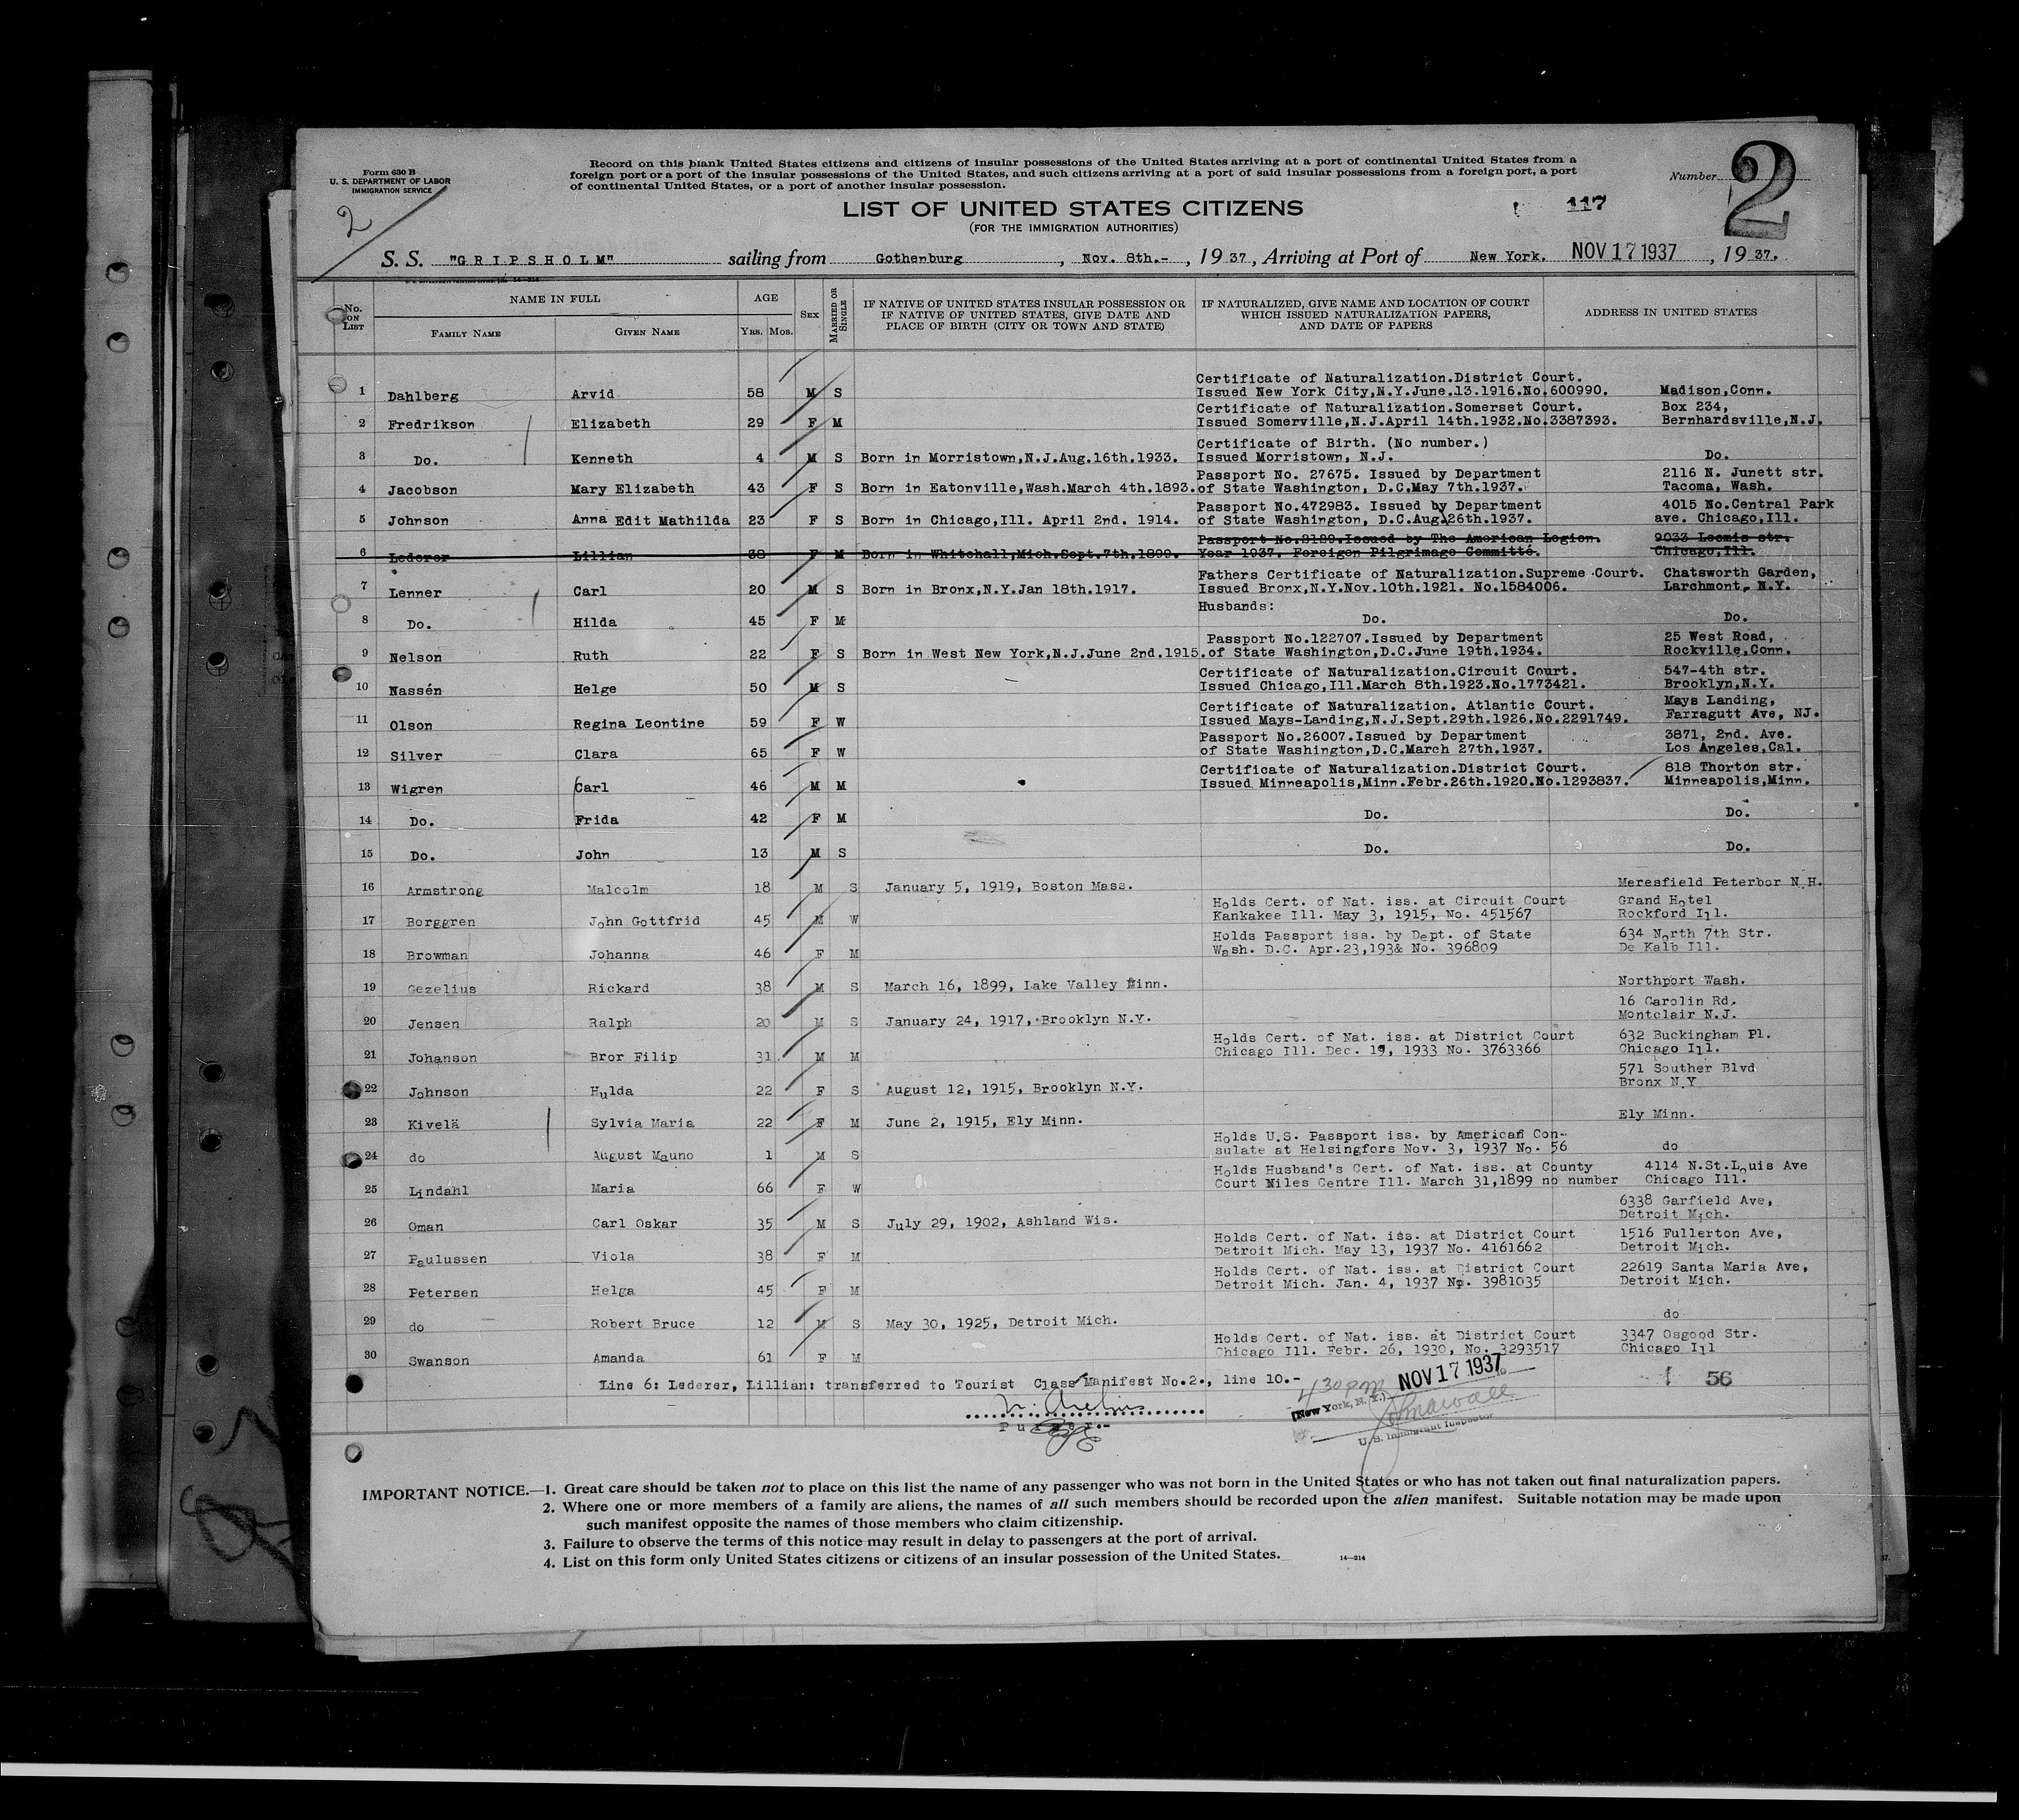 Form 630 B
U. S. DEPARTMENT OF LABOR
IMMIGRATION SERVICE
2
Record on this blank United States citizens and citizens of insular possessions of the United States arriving at a port of continental United States from a
foreign port or a port of the insular possessions of the United States, and such citizens arriving at a port of said insular possessions from a foreign port, a port
of continental United States, or a port of another insular possession.
Number 2
LIST OF UNITED STATES CITIZENS
117
(FOR THE IMMIGRATION AUTHORITIES)
S. S. "GRIPSHOLM" sailing from Gothenburg, Nov. 8th.-, 1937, Arriving at Port of New York. NOV 17 1937, 1937.
No. ON LIST
NAME IN FULL
FAMILY NAME
GIVEN NAME
AGE
YRS. MOS.
SEX
MARRIED OR SINGLE
IF NATIVE OF UNITED STATES INSULAR POSSESSION OR
IF NATIVE OF UNITED STATES, GIVE DATE AND
PLACE OF BIRTH (CITY OR TOWN AND STATE)
IF NATURALIZED, GIVE NAME AND LOCATION OF COURT
WHICH ISSUED NATURALIZATION PAPERS,
AND DATE OF PAPERS
ADDRESS IN UNITED STATES
Certificate of Naturalization.District Court.
1 Dahlberg Arvid 58 M S Issued New York City,N.Y.June.13.1916.No.600990. Madison,Conn.
Certificate of Naturalization.Somerset Court. Box 234,
2 Fredrikson Elizabeth 29 F M Issued Somerville,N.J.April 14th.1932.No.3387393. Bernhardsville,N.J.
Certificate of Birth. (No number.)
3 Do. Kenneth 4 M S Born in Morristown,N.J.Aug.16th.1933. Issued Morristown, N.J. Do.
Passport No. 27675. Issued by Department 2116 N. Junett str.
4 Jacobson Mary Elizabeth 43 F S Born in Eatonville,Wash.March 4th.1893. of State Washington, D.C.May 7th.1937. Tacoma, Wash.
Passport No.472983. Issued by Department 4015 No.Central Park
5 Johnson Anna Edit Mathilda 23 F S Born in Chicago,Ill. April 2nd. 1914. of State Washington, D.C.Aug.26th.1937. ave. Chicago,Ill.
Passport No.2129.Issued by The American Legion. 9033 Loomis str.
6 Lederer Lillian 38 F M Born in Whitehall,Mich.Sept.7th.1899. Year 1937. Foreigen Pilgrimage Committé. Chicago,Ill.
Fathers Certificate of Naturalization.Supreme Court. Chatsworth Garden,
7 Lenner Carl 20 M S Born in Bronx,N.Y.Jan 18th.1917. Issued Bronx,N.Y.Nov.10th.1921. No.1584006. Larchmont, N.Y.
Husbands:
8 Do. Hilda 45 F M Do. Do.
Passport No.122707.Issued by Department 25 West Road,
9 Nelson Ruth 22 F S Born in West New York,N.J.June 2nd.1915. of State Washington,D.C.June 19th.1934. Rockville,Conn.
Certificate of Naturalization.Circuit Court. 547-4th str.
10 Nassén Helge 50 M S Issued Chicago,Ill.March 8th.1923.No.1773421. Brooklyn,N.Y.
Certificate of Naturalization. Atlantic Court. Mays Landing,
11 Olson Regina Leontine 59 F W Issued Mays-Landing,N.J.Sept.29th.1926.No.2291749. Farragutt Ave, NJ.
Passport No.26007.Issued by Department 3871, 2nd. Ave.
12 Silver Clara 65 F W of State Washington,D.C.March 27th.1937. Los Angeles,Cal.
Certificate of Naturalization.District Court. 818 Thorton str.
13 Wigren Carl 46 M M Issued Minneapolis,Minn.Febr.26th.1920.No.1293837. Minneapolis,Minn.
14 Do. Frida 42 F M Do. Do.
15 Do. John 13 M S Do. Do.
16 Armstrong Malcolm 18 M S January 5, 1919, Boston Mass. Meresfield Peterbor N.H.
Holds Cert. of Nat. iss. at Circuit Court Grand Hotel
17 Borggren John Gottfrid 45 M W Kankakee Ill. May 3, 1915, No. 451567 Rockford Ill.
Holds Passport iss. by Dept. of State 634 North 7th Str.
18 Browman Johanna 46 F M Wash. D.C. Apr.23,193& No. 396809 De Kalb Ill.
19 Gezelius Rickard 38 M S March 16, 1899, Lake Valley Minn. Northport Wash.
16 Carolin Rd.
20 Jensen Ralph 20 M S January 24, 1917, Brooklyn N.Y. Montclair N.J.
Holds Cert. of Nat. iss. at District Court 632 Buckingham Pl.
21 Johanson Bror Filip 31 M M Chicago Ill. Dec. 19, 1933 No. 3763366 Chicago Ill.
571 Souther Blvd
22 Johnson Hulda 22 F S August 12, 1915, Brooklyn N.Y. Bronx N.Y
23 Kivelä Sylvia Maria 22 F M June 2, 1915, Ely Minn. Ely Minn.
Holds U.S. Passport iss. by American Con-
24 do August Mauno 1 M S sulate at Helsingfors Nov. 3, 1937 No. 56 do
Holds Husband's Cert. of Nat. iss. at County 4114 N.St.Louis Ave
25 Lindahl Maria 66 F W Court Niles Centre Ill. March 31,1899 no number Chicago Ill.
6338 Garfield Ave,
26 Oman Carl Oskar 35 M S July 29, 1902, Ashland Wis. Detroit Mich.
Holds Cert. of Nat. iss. at District Court 1516 Fullerton Ave,
27 Paulussen Viola 38 F M Detroit Mich. May 13, 1937 No. 4161662 Detroit Mich.
Holds Cert. of Nat. iss. at District Court 22619 Santa Maria Ave,
28 Petersen Helga 45 F M Detroit Mich. Jan. 4, 1937 No. 3981035 Detroit Mich.
29 do Robert Bruce 12 M S May 30, 1925, Detroit Mich. do
Holds Cert. of Nat. iss. at District Court 3347 Osgood Str.
30 Swanson Amanda 61 F M Chicago Ill. Febr. 26, 1930, No. 3293517 Chicago Ill
Line 6: Lederer, Lillian: transferred to Tourist Class Manifest No.2., line 10.-
NOV 17 1937
56
430 PM
(New York, N. Y.)
Purser.-
U. S. Immigrant Inspector
IMPORTANT NOTICE.—1. Great care should be taken not to place on this list the name of any passenger who was not born in the United States or who has not taken out final naturalization papers.
2. Where one or more members of a family are aliens, the names of all such members should be recorded upon the alien manifest. Suitable notation may be made upon
such manifest opposite the names of those members who claim citizenship.
3. Failure to observe the terms of this notice may result in delay to passengers at the port of arrival.
4. List on this form only United States citizens or citizens of an insular possession of the United States.
14—214